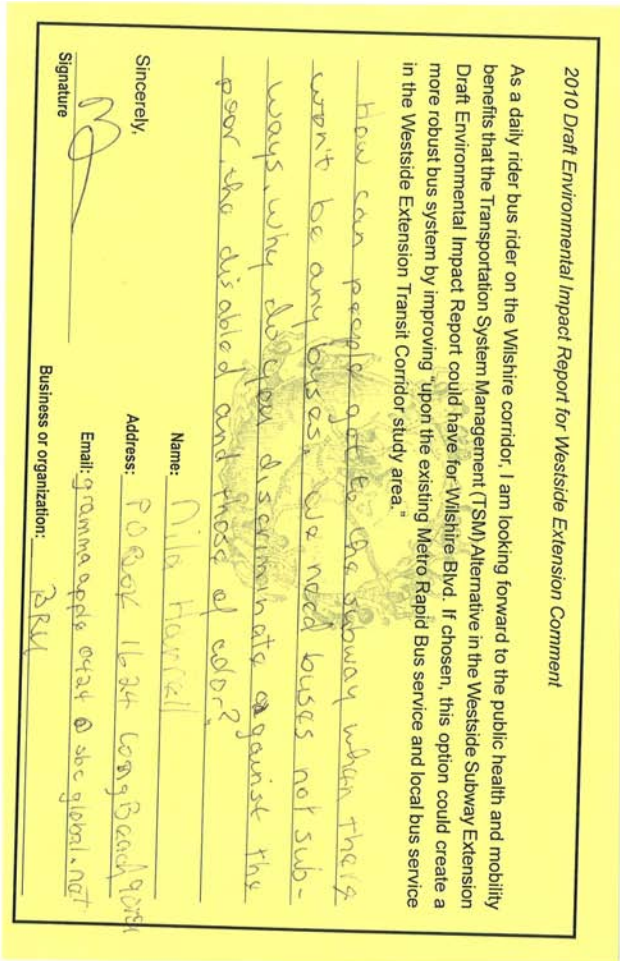 2010 Draft Environmental Impact Report for Westside Extension Comment
As a daily rider bus rider on the Wilshire corridor, I am looking forward to the public health and mobility
benefits that the Transportation System Management (TSM) Alternative in the Westside Subway Extension
Draft Environmental Impact Report could have for Wilshire Blvd. If chosen, this option could create a
more robust bus system by improving "upon the existing Metro Rapid Bus service and local bus service
in the Westside Extension Transit Corridor study area."
How can people get to the subway when there
won't be any buses. We need buses not sub-
ways. Why do you discriminate against the
poor, the disabled and those of color?
Sincerely,
Signature
Name:
Address: PO Box 1624 Long Beach
Email: grammaapple0424@sbcglobal.net
Business or organization: BRU